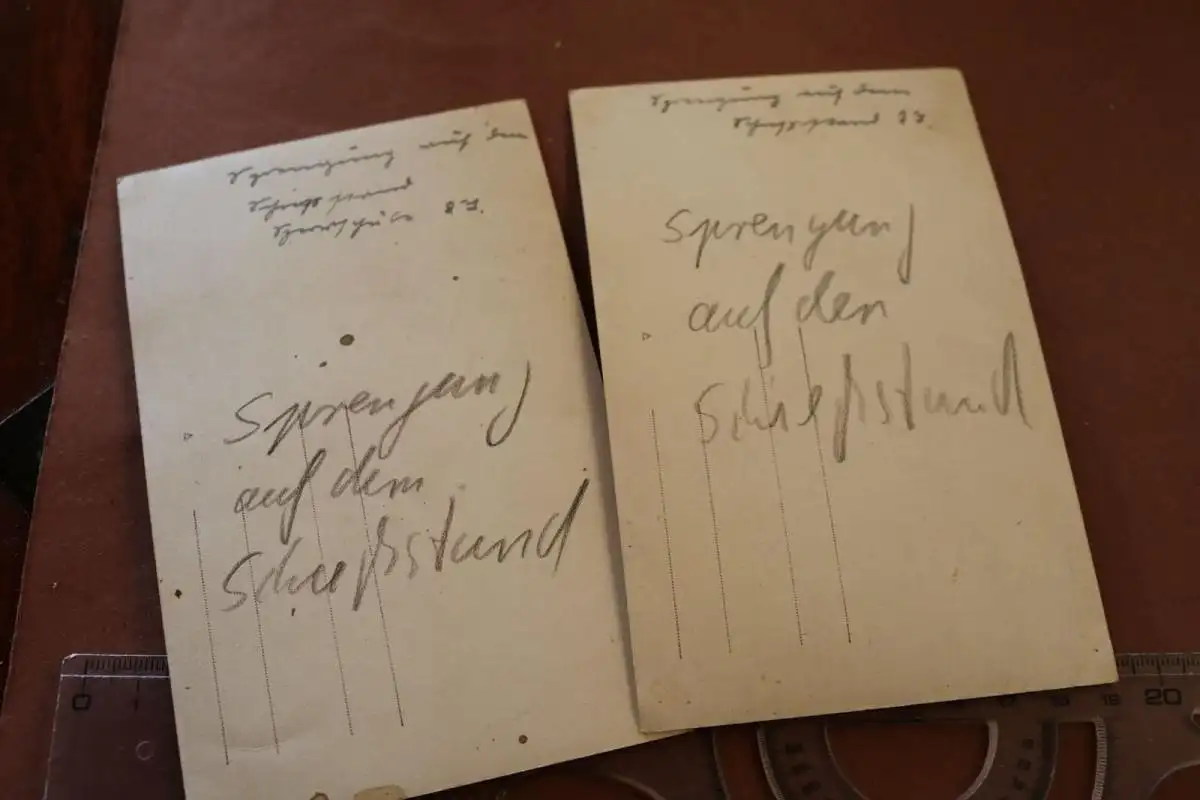 Sprengung auf dem
Schießstand
87.
Sprengung
auf dem
Schießstand
Sprengung auf dem
Schießstand
Sprengung
auf den
Schießstand
0 1
15 16 20